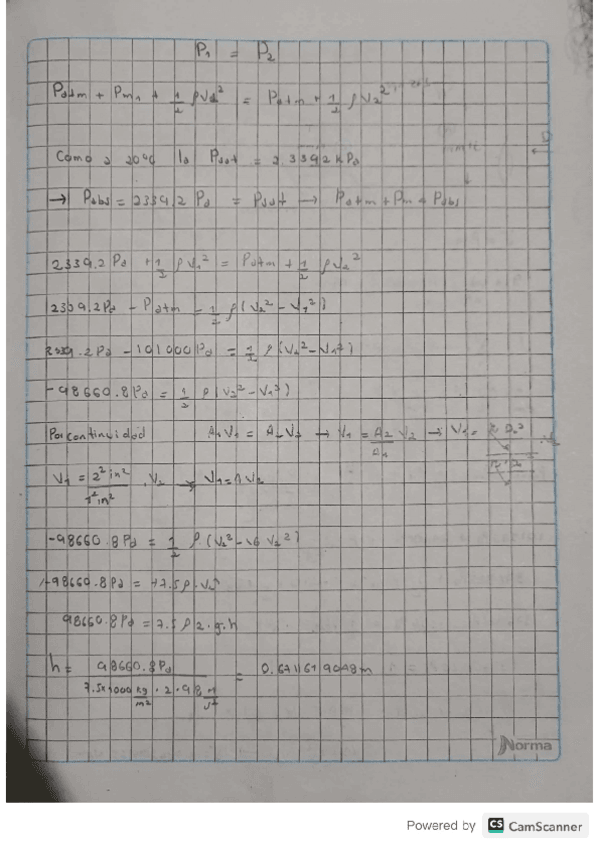 P₁ = P₂
Patm + Pm₁ + 1/2 ρV₁² = Patm + 1/2 ρV₂²
Como a 20°C la Psat = 2.3392 kPa
→ Pabs = 2339.2 Pa = Psat → Patm + Pm = Pabs
2339.2 Pa + 1/2 ρV₁² = Patm + 1/2 ρV₂²
2339.2 Pa - Patm = 1/2 ρ(V₂² - V₁²)
2339.2 Pa - 101000 Pa = 1/2 ρ(V₂² - V₁²)
-98660.8 Pa = 1/2 ρ(V₂² - V₁²)
Por continuidad A₁V₁ = A₂V₂ → V₁ = A₂/A₁ V₂ → V₁ =
V₁ = 2² in²/1² in² . V₂ → V₁ = 4 V₂
-98660.8 Pa = 1/2 ρ.(V₂² - 16 V₂²)
-98660.8 Pa = 7.5 ρ.V₂²
98660.8 Pa = 7.5 ρ 2.g.h
h = 98660.8 Pa / 7.5x1000 kg/m² . 2 . 9.8 m/s² =
Norma
Powered by CS CamScanner